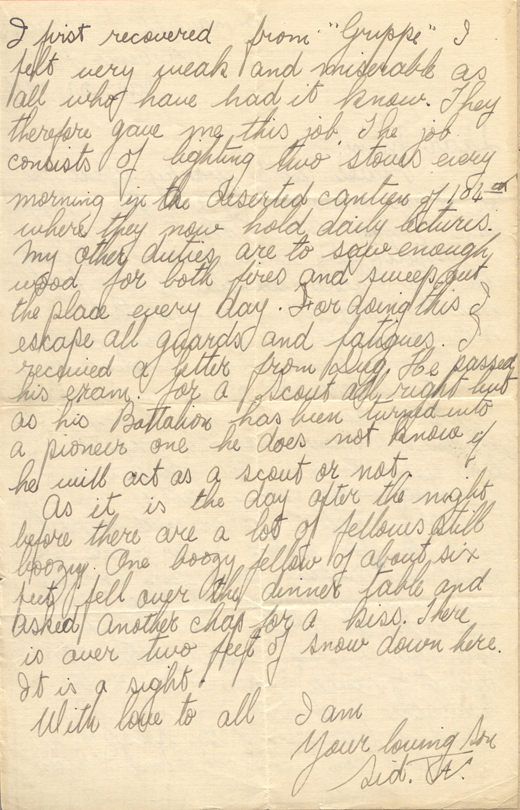 I first recovered from "Grippe" I
felt very weak and miserable as
all who have had it know. They
therefore gave me this job. The job
consists of lighting two stoves every
morning in the deserted canteen of 184
where they now hold daily lectures.
My other duties are to saw enough
wood for both fires and sweep out
the place every day. For doing this I
escape all guards and fatigues. I
received a letter from He passed
his exam. for a scout all right but
as his Battalion has been turned into
a pioneer one he does not know if
he will act as a scout or not.
As it is the day after the night
before there are a lot of fellows still
boozy. One boozy fellow of about six
feet fell over the dinner table and
asked another chap for a kiss. There
is over two feet of snow down here.
It is a sight.
With love to all I am
Your loving Son
Sid.